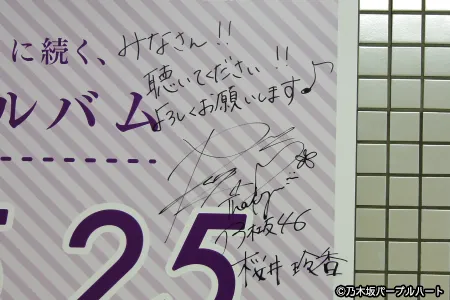 に続く、
みなさん!!
聴いてください!!
よろしくお願いします♪
ルバム
Thank you
乃木坂46
桜井 玲香
5 25
©乃木坂パープルハート